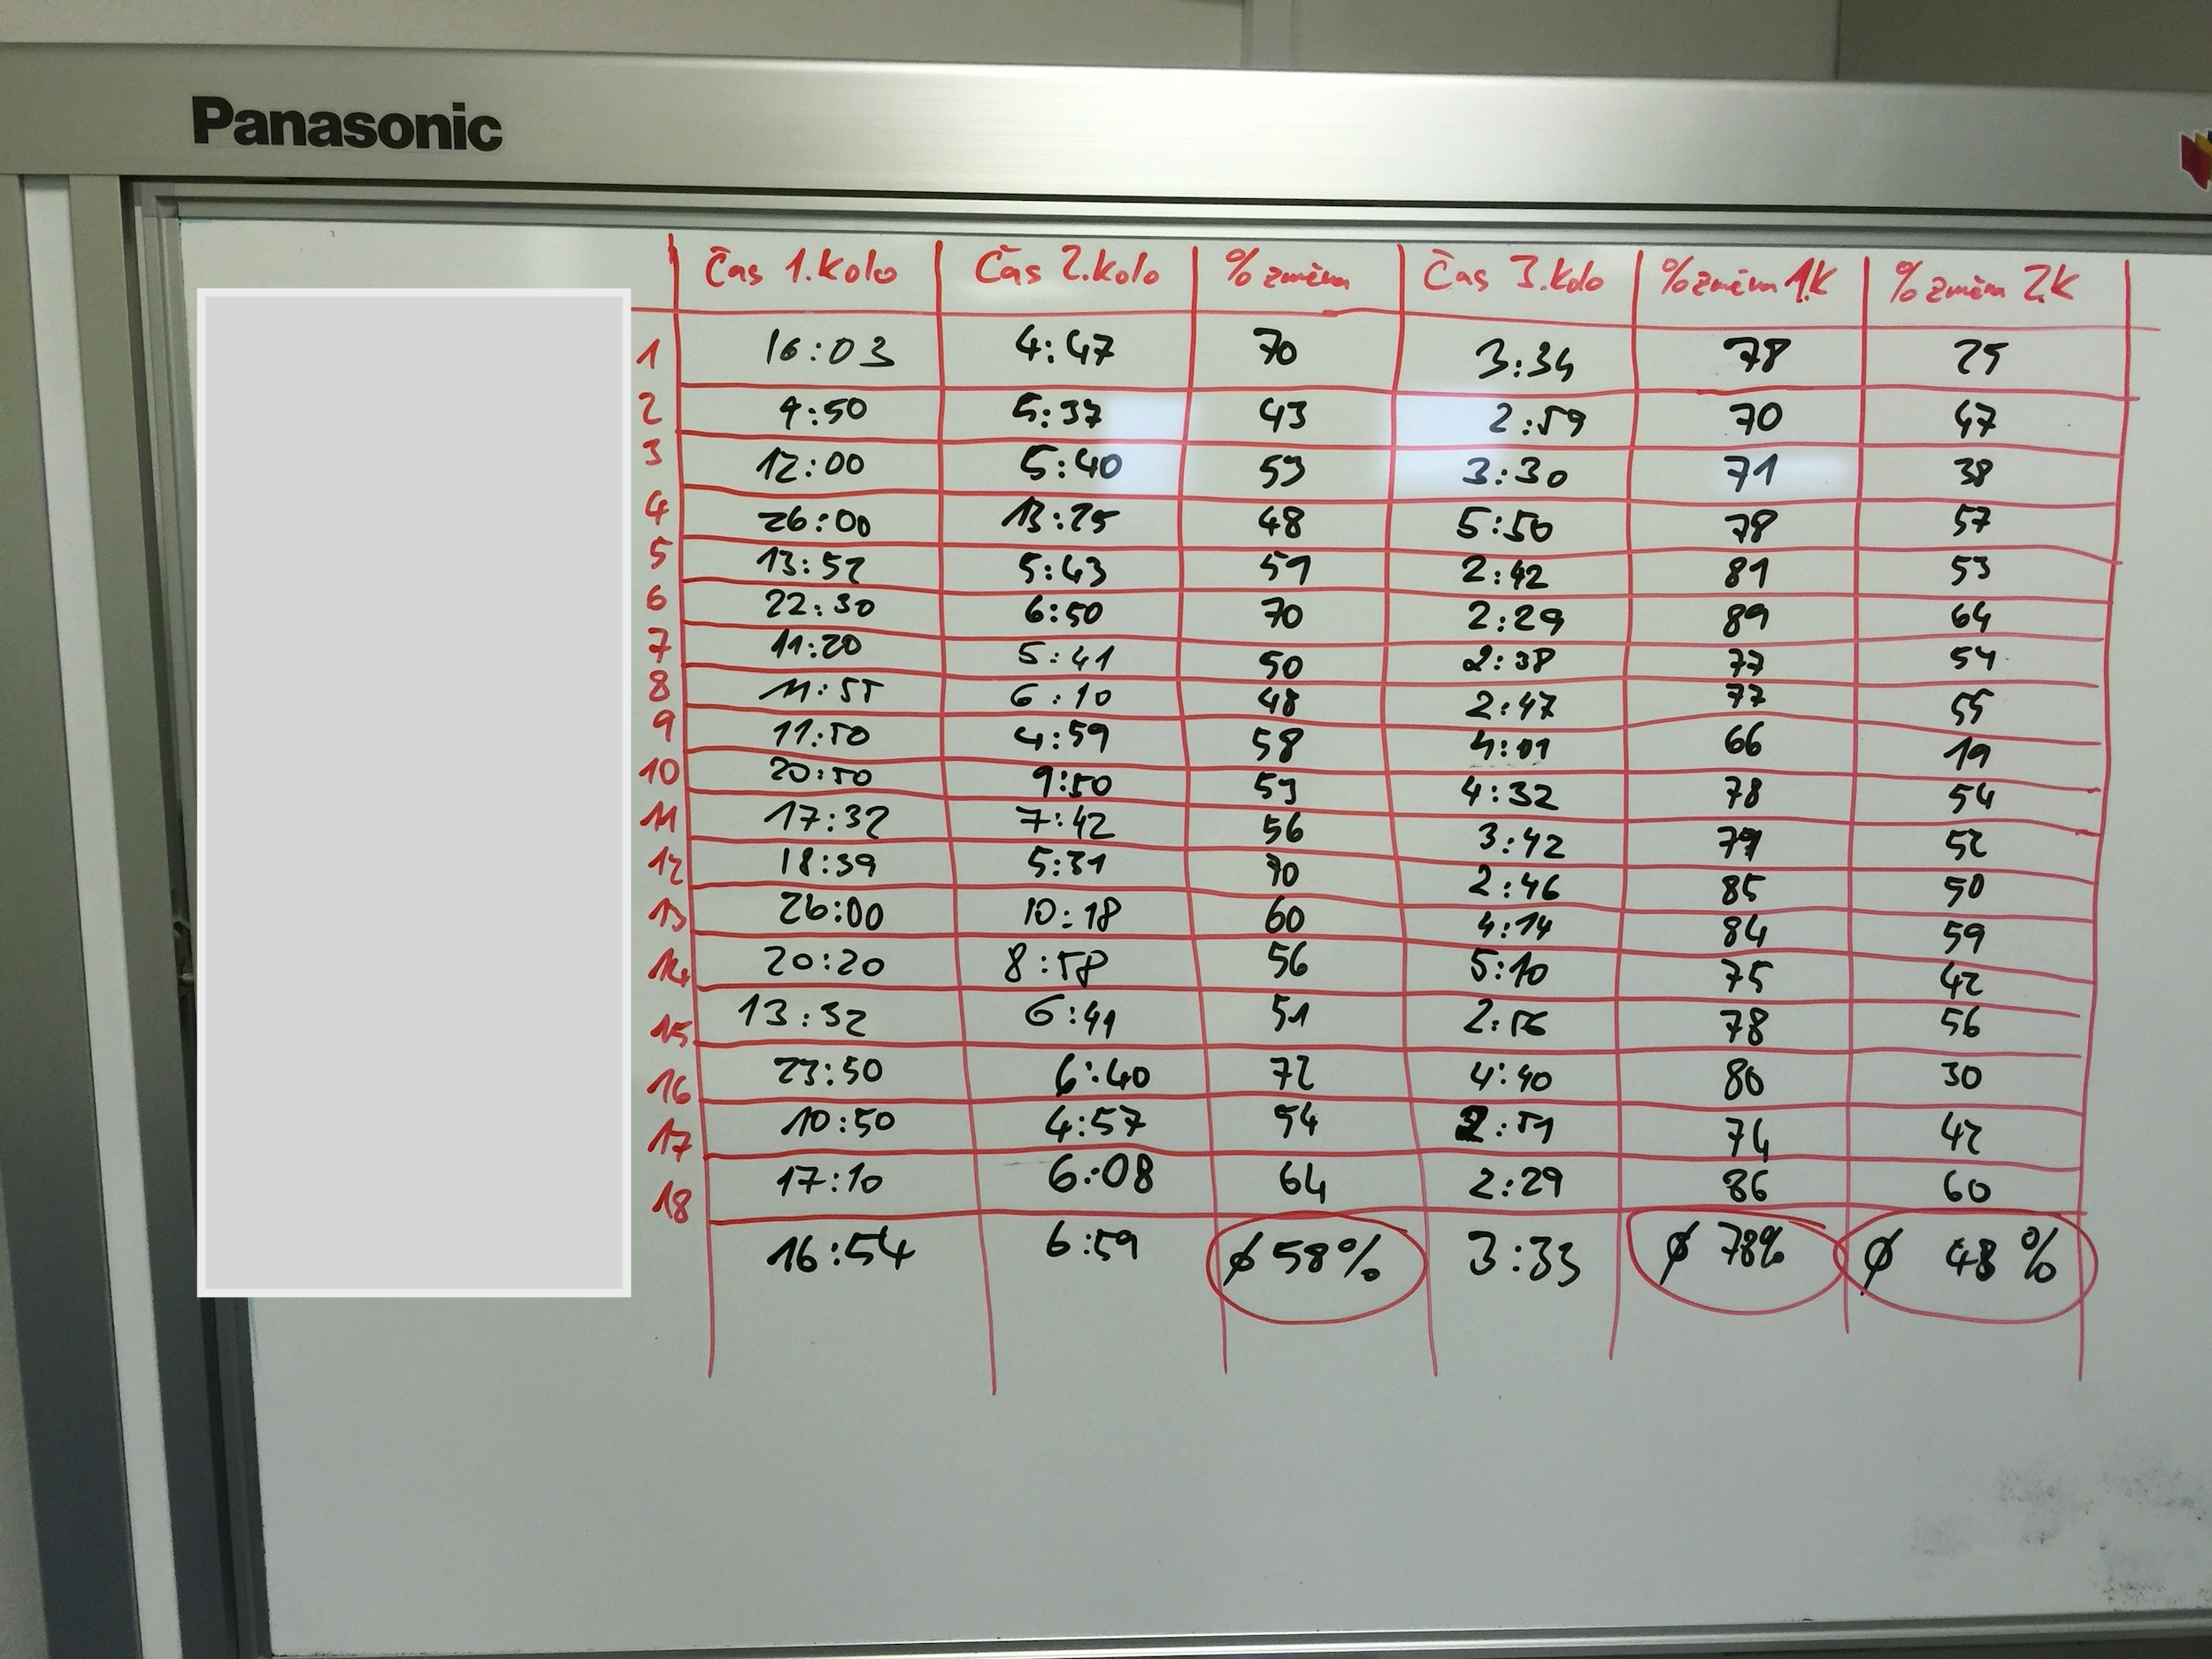 Panasonic
Čas 1.kolo Čas 2.kolo % změna Čas 3.kolo % změna 1.K % změna 2.K
1 16:03 4:47 70 3:34 78 25
2 9:50 5:37 43 2:59 70 47
3 12:00 5:40 53 3:30 71 38
4 26:00 13:25 48 5:50 78 57
5 13:52 5:43 59 2:42 81 53
6 22:30 6:50 70 2:29 89 64
7 11:20 5:41 50 2:38 77 54
8 11:55 6:10 48 2:47 77 55
9 11:50 4:59 58 4:01 66 19
10 20:50 9:50 53 4:32 78 54
11 17:32 7:42 56 3:42 79 52
12 18:39 5:31 70 2:46 85 50
13 26:00 10:18 60 4:14 84 59
14 20:20 8:58 56 5:10 75 42
15 13:32 6:41 51 2:56 78 56
16 23:50 6:40 72 4:40 80 30
17 10:50 4:57 54 2:51 74 42
18 17:10 6:08 64 2:29 86 60
16:54 6:59 ø 58% 3:33 ø 78% ø 48%